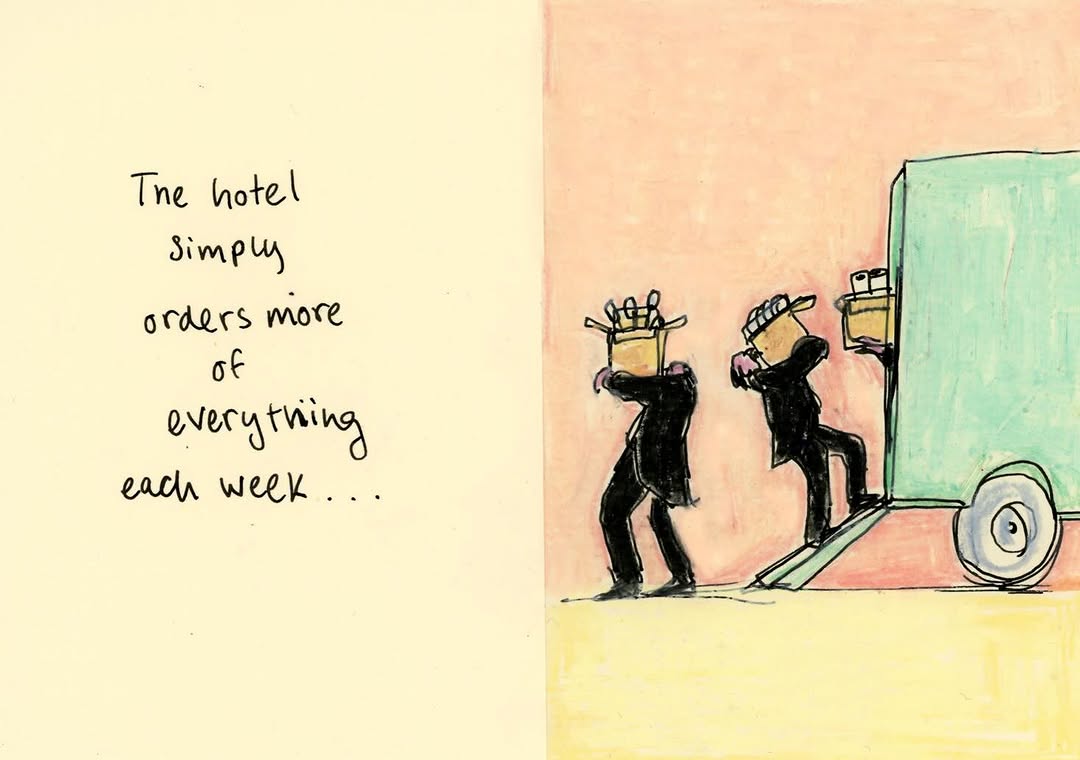 The hotel
simply
orders more
of
everything
each week...